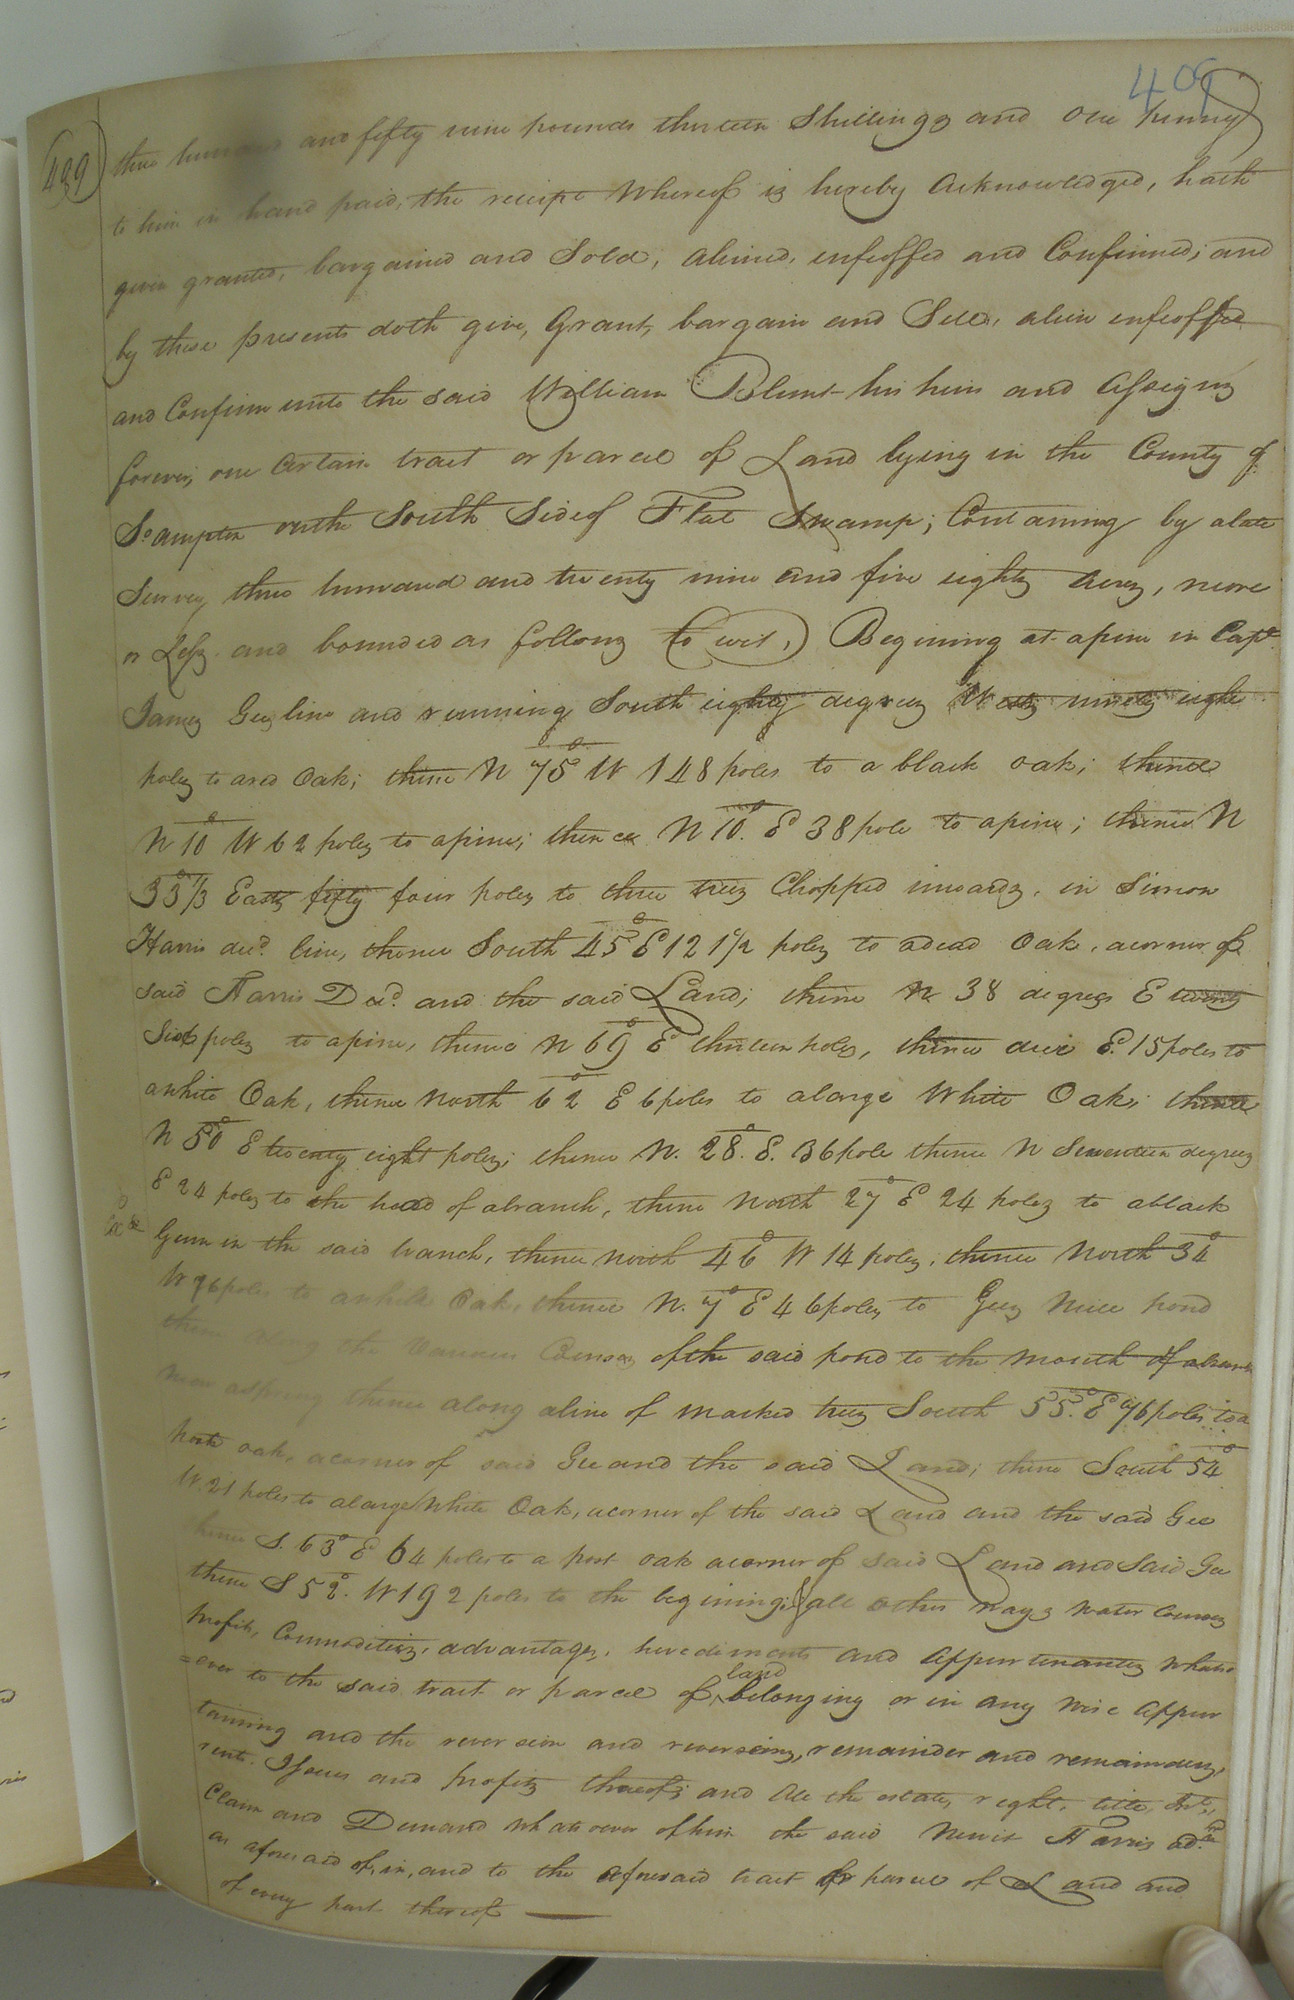 409
(499) three hundred and fifty nine pounds thirteen Shillings and one penny
to him in hand paid, the receipt Whereof is hereby Acknowledged, hath
given granted, bargained and Sold, aliened, enfeoffed and Confirmed; and
by these presents doth give, Grant, bargain and Sell, alien enfeoffed
and Confirm unto the said William Blunt his heirs and Assigns
forever, one Certain tract or parcel of Land lying in the County of
So. ampton on the South Side of Flat Swamp; Containing by a late
Survey three hundred and twenty nine and five eighty Acres, more
or Less and bounded as follows (to wit,) Begining at a pine in Capt
James Gees line and running South eighty degrees West ninety eight
poles to a red Oak; thence N 75° W 148 poles to a black oak; thence
N 10° W 62 poles to a pine; thence N 10° E 38 pole to a pine; thence N
33°1/3 East fifty four poles to three trees Chopped inwards, in Simon
Harris decd. line, thence South 45° E 121/2 poles to a dead Oak, a corner of
said Harris Decd. and the said Land; thence N 38 degrees E twenty
Six poles to a pine, thence N 69° E thirteen poles, thence due E. 15 poles to
a white Oak, thence North 62° E 6 poles to a large White Oak; thence
N 50° E twenty eight poles; thence N. 28°. E. 36 pole thence N Seventeen degrees
E 24 poles to the head of a branch, thence North 27° E 24 poles to a black
Gum in the said branch, thence North 46° W 14 poles, thence North 34°
W 76 poles to a white Oak, thence N. 7° E 46 poles to Gees Mill pond
thence along the Various Courses of the said pond to the Mouth of a branch
near a spring thence along a line of marked trees South 55°. E 76 poles to a
post oak, a corner of said Gee and the said Land; thence South 54°
W. 21 poles to a large White Oak, a corner of the said Land and the said Gee
thence S. 63° E 64 poles to a post oak a corner of said Land and Said Gee
thence S 52°. W 192 poles to the begining; & all other ways water Courses
profits, Commodities, advantages, herediments and Appurtenantes whats=
=ever to the said tract or parcel of ^land belonging or in any wise Appur
taining and the reversion and reversions, remainder and remainders,
rents Issues and profits thereof; and All the estate, right, title, Int.,
Claim and Demand whatsoever of him the said Newit Harris
as aforesaid of, in, and to the aforesaid tract or parcel of Land and
of every part thereof —